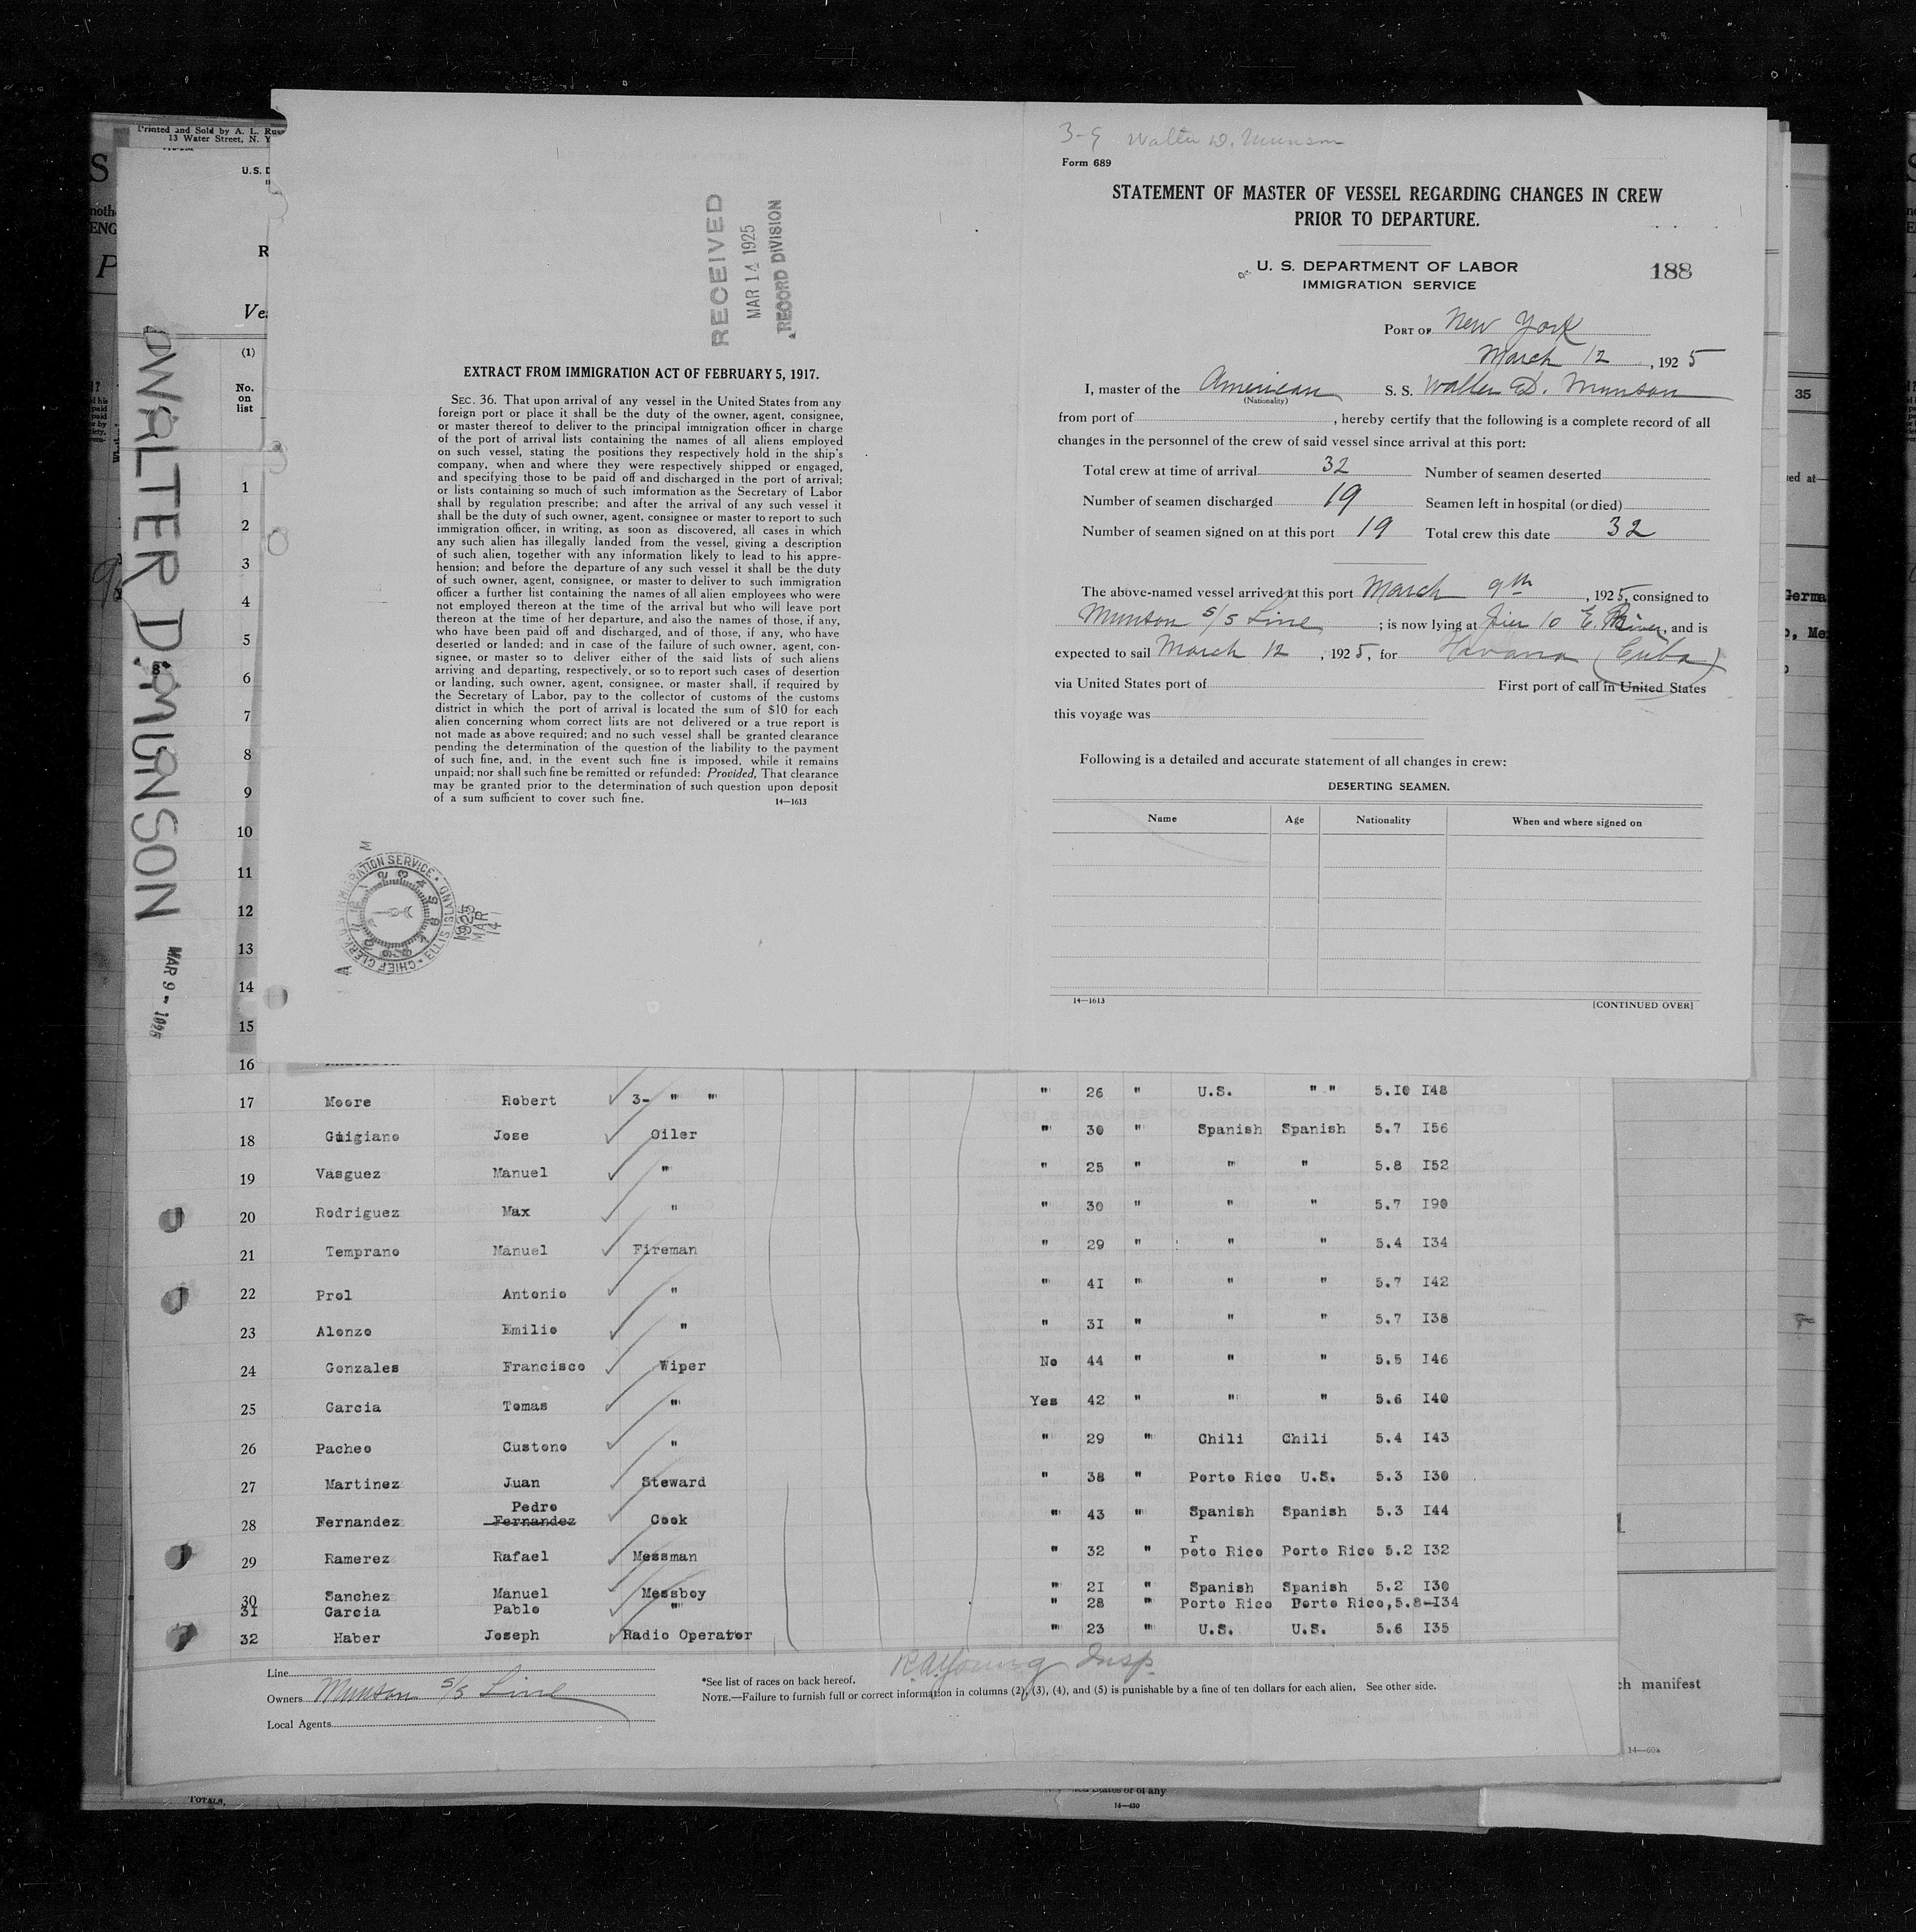 Printed and Sold by A. L. Rus
13 Water Street, N. Y
U.S. D
R
Ve
(1)
No.
on
list
WALTER D. MUNSON
MAR 9 - 1925
RECEIVED
MAR 14 1925
RECORD DIVISION
EXTRACT FROM IMMIGRATION ACT OF FEBRUARY 5, 1917.
SEC. 36. That upon arrival of any vessel in the United States from any
foreign port or place it shall be the duty of the owner, agent, consignee,
or master thereof to deliver to the principal immigration officer in charge
of the port of arrival lists containing the names of all aliens employed
on such vessel, stating the positions they respectively hold in the ship's
company, when and where they were respectively shipped or engaged,
and specifying those to be paid off and discharged in the port of arrival;
or lists containing so much of such imformation as the Secretary of Labor
shall by regulation prescribe; and after the arrival of any such vessel it
shall be the duty of such owner, agent, consignee or master to report to such
immigration officer, in writing, as soon as discovered, all cases in which
any such alien has illegally landed from the vessel, giving a description
of such alien, together with any information likely to lead to his appre-
hension; and before the departure of any such vessel it shall be the duty
of such owner, agent, consignee, or master to deliver to such immigration
officer a further list containing the names of all alien employees who were
not employed thereon at the time of the arrival but who will leave port
thereon at the time of her departure, and also the names of those, if any,
who have been paid off and discharged, and of those, if any, who have
deserted or landed; and in case of the failure of such owner, agent, con-
signee, or master so to deliver either of the said lists of such aliens
arriving and departing, respectively, or so to report such cases of desertion
or landing, such owner, agent, consignee, or master shall, if required by
the Secretary of Labor, pay to the collector of customs of the customs
district in which the port of arrival is located the sum of $10 for each
alien concerning whom correct lists are not delivered or a true report is
not made as above required; and no such vessel shall be granted clearance
pending the determination of the question of the liability to the payment
of such fine, and, in the event such fine is imposed, while it remains
unpaid; nor shall such fine be remitted or refunded: Provided, That clearance
may be granted prior to the determination of such question upon deposit
of a sum sufficient to cover such fine. 14—1613
CHIEF CLERK U.S. IMMIGRATION SERVICE • ELLIS ISLAND
1925
MAR
14
3-9 Walter D. Munson
Form 689
STATEMENT OF MASTER OF VESSEL REGARDING CHANGES IN CREW
PRIOR TO DEPARTURE.
U. S. DEPARTMENT OF LABOR
IMMIGRATION SERVICE
188
PORT OF New York
March 12, 1925
I, master of the American S. S. Walter D. Munson
(Nationality)
from port of , hereby certify that the following is a complete record of all
changes in the personnel of the crew of said vessel since arrival at this port:
Total crew at time of arrival 32 Number of seamen deserted
Number of seamen discharged 19 Seamen left in hospital (or died)
Number of seamen signed on at this port 19 Total crew this date 32
The above-named vessel arrived at this port March 9th, 1925, consigned to
Munson S/S Line ; is now lying at Pier 10 E. River, and is
expected to sail March 12, 1925, for Havana (Cuba)
via United States port of First port of call in United States
this voyage was
Following is a detailed and accurate statement of all changes in crew:
DESERTING SEAMEN.
Name Age Nationality When and where signed on
14—1613 [CONTINUED OVER]
35
1
2
3
4
5
6
7
8
9
10
11
12
13
14
15
16
17 Moore Robert 3- " " " 26 " U.S. " " 5.I0 I48
18 Guigiano Jose Oiler " 30 " Spanish Spanish 5.7 I56
19 Vasguez Manuel " " 25 " " " 5.8 I52
20 Rodriguez Max " " 30 " " " 5.7 I90
21 Temprano Manuel Fireman " 29 " " " 5.4 I34
22 Prol Antonio " " 4I " " " 5.7 I42
23 Alonzo Emilio " " 3I " " " 5.7 I38
24 Gonzales Francisco Wiper No 44 " " " 5.5 I46
25 Garcia Tomas " Yes 42 " " " 5.6 I40
26 Pacheo Custono " " 29 " Chili Chili 5.4 I43
27 Martinez Juan Steward " 38 " Porto Rico U.S. 5.3 I30
Pedro
28 Fernandez Fernandez Cook " 43 " Spanish Spanish 5.3 I44
r
29 Ramerez Rafael Messman " 32 " poto Rico Porto Rico 5.2 I32
30 Sanchez Manuel Messboy " 2I " Spanish Spanish 5.2 I30
31 Garcia Pablo " " 28 " Porto Rico Porto Rico, 5.8-I34
32 Haber Joseph Radio Operator " 23 " U.S. U.S. 5.6 I35
Line
Owners Munson S/S Line
Local Agents
R A Young Insp
*See list of races on back hereof.
NOTE.—Failure to furnish full or correct information in columns (2), (3), (4), and (5) is punishable by a fine of ten dollars for each alien. See other side.
ch manifest
TOTALS,
14—430